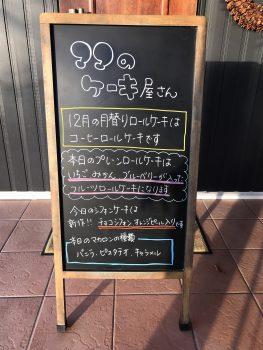 ??の
ケーキ屋さん
12月の月替りロールケーキは
コーヒーロールケーキです
本日のプレーンロールケーキは
いちご みかん ブルーベリーが入った
フルーツロールケーキになります
今日のシフォンケーキは
新作!! チョコシフォン オレンジピール入りです
本日のマカロンの種類
バニラ、ピスタチオ、キャラメル